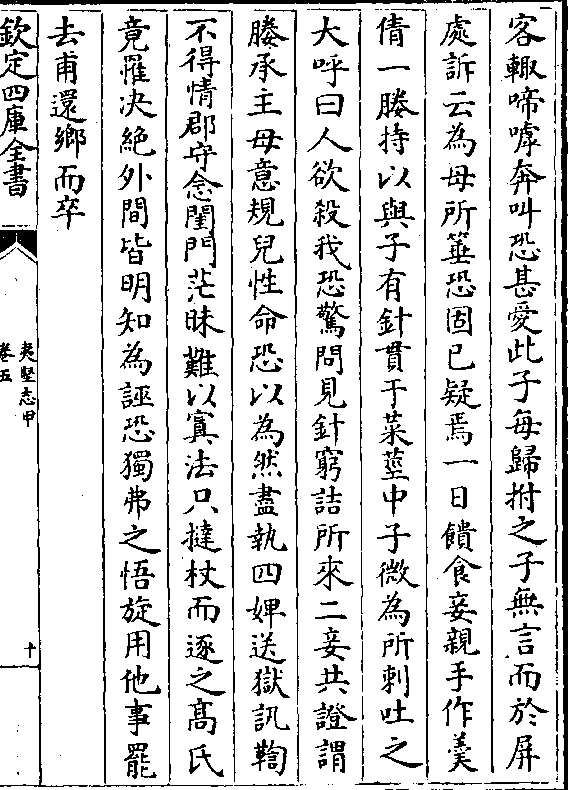 客輙啼嘑奔叫恐甚愛此子每歸拊之子無言而於屏
處訴云為母所箠恐固已疑焉一日饋食妾親手作羮
倩一媵持以與子有針貫于菜莖中子微為所刺吐之
大呼曰人欲殺我恐驚問見針窮詰所來二妾共證謂
媵承主母意規兒性命恐以為然盡執四婢送獄訊鞫
不得情郡守念閨門茫昧難以寘法只撻杖而逐之髙氏
竟罹决絶外間皆明知為誣恐獨弗之悟旋用他事罷
去甫還鄉而卒
欽定四庫全書
夷堅志甲
卷五
十